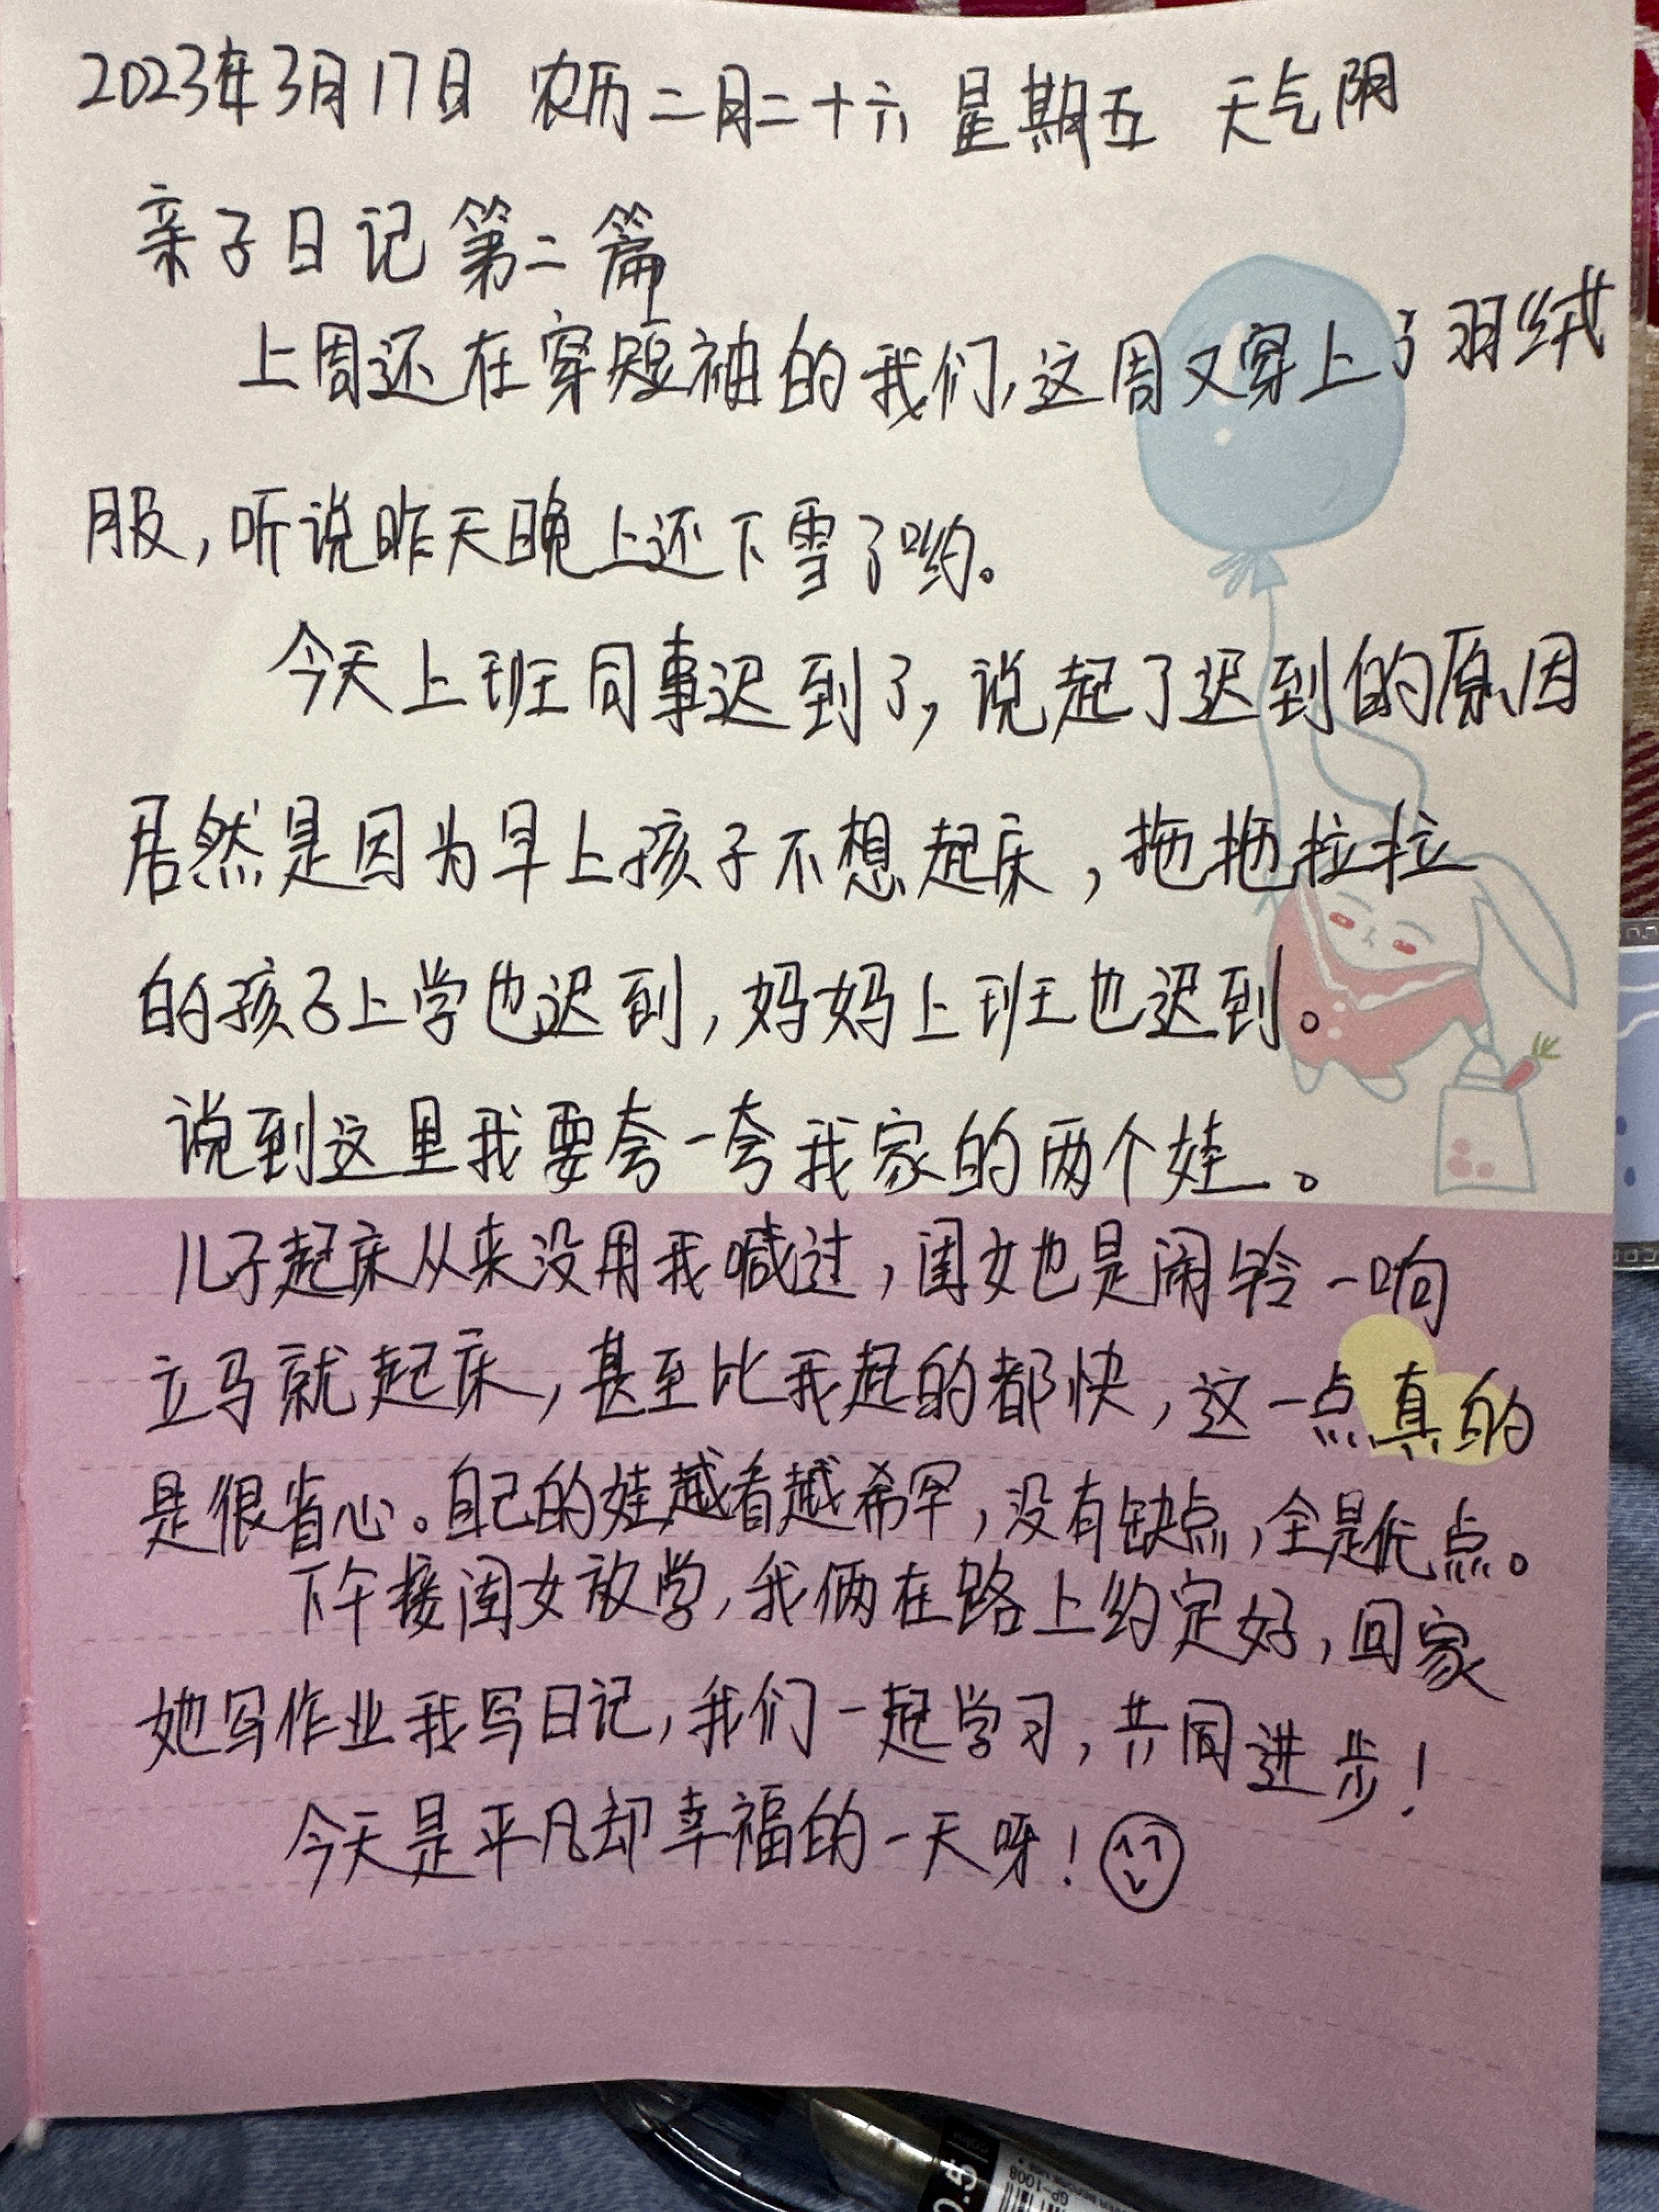 2023年3月17日 农历二月二十六 星期五 天气阴
亲子日记第二篇
上周还在穿短袖的我们,这周又穿上了羽绒
服,听说昨天晚上还下雪了哟。
今天上班同事迟到了,说起了迟到的原因
居然是因为早上孩子不想起床,拖拖拉拉
的孩子上学也迟到,妈妈上班也迟到。
说到这里我要夸一夸我家的两个娃。
儿子起床从来没用我喊过,闺女也是闹铃一响
立马就起床,甚至比我起的都快,这一点真的
是很省心。自己的娃越看越希罕,没有缺点,全是优点。
下午接闺女放学,我俩在路上约定好,回家
她写作业我写日记,我们一起学习,共同进步!
今天是平凡却幸福的一天呀!
0.5
GP-1008